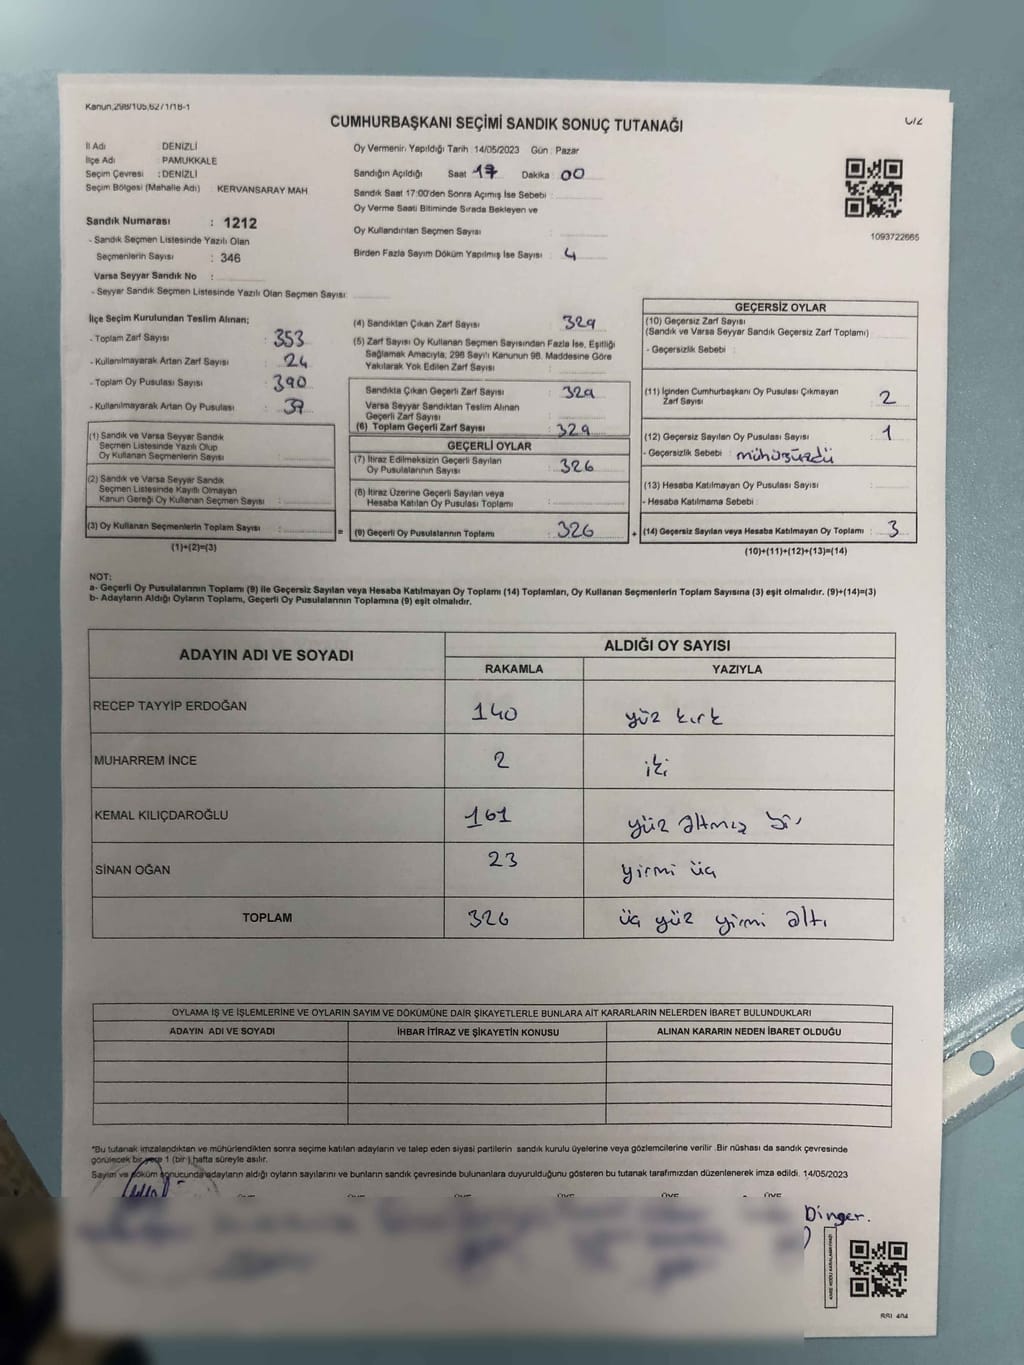 Kanun,298/105,627/1/18-1
CUMHURBAŞKANI SEÇİMİ SANDIK SONUÇ TUTANAĞI
İl Adı DENİZLİ
İlçe Adı PAMUKKALE
Seçim Çevresi : DENİZLİ
Seçim Bölgesi (Mahalle Adı) : KERVANSARAY MAH
Sandık Numarası : 1212
- Sandık Seçmen Listesinde Yazılı Olan
Seçmenlerin Sayısı : 346
Varsa Seyyar Sandık No :
- Seyyar Sandık Seçmen Listesinde Yazılı Olan Seçmen Sayısı:
Oy Vermenin Yapıldığı Tarih :14/05/2023 Gün : Pazar
Sandığın Açıldığı Saat 17 Dakika 00
Sandık Saat 17:00'den Sonra Açımış İse Sebebi :
Oy Verme Saati Bitiminde Sırada Bekleyen ve
Oy Kullandırılan Seçmen Sayısı :
Birden Fazla Sayım Döküm Yapılmış İse Sayısı : 4
1093722665
İlçe Seçim Kurulundan Teslim Alınan;
- Toplam Zarf Sayısı : 353
- Kullanılmayarak Artan Zarf Sayısı : 24
- Toplam Oy Pusulası Sayısı : 390
- Kullanılmayarak Artan Oy Pusulası : 37
(1) Sandık ve Varsa Seyyar Sandık
Seçmen Listesinde Yazılı Olup
Oy Kullanan Seçmenlerin Sayısı :
(2) Sandık ve Varsa Seyyar Sandık
Seçmen Listesinde Kayıtlı Olmayan
Kanun Gereği Oy Kullanan Seçmen Sayısı :
(3) Oy Kullanan Seçmenlerin Toplam Sayısı : =
(1)+(2)=(3)
(4) Sandıktan Çıkan Zarf Sayısı : 329
(5) Zarf Sayısı Oy Kullanan Seçmen Sayısından Fazla İse, Eşitliği
Sağlamak Amacıyla, 298 Sayılı Kanunun 98. Maddesine Göre
Yakılarak Yok Edilen Zarf Sayısı :
Sandıkta Çıkan Geçerli Zarf Sayısı : 329
Varsa Seyyar Sandıktan Teslim Alınan
Geçerli Zarf Sayısı :
(6) Toplam Geçerli Zarf Sayısı : 329
GEÇERLİ OYLAR
(7) İtiraz Edilmeksizin Geçerli Sayılan
Oy Pusulalarının Sayısı : 326
(8) İtiraz Üzerine Geçerli Sayılan veya
Hesaba Katılan Oy Pusulası Toplamı :
(9) Geçerli Oy Pusulalarının Toplamı : 326 +
GEÇERSİZ OYLAR
(10) Geçersiz Zarf Sayısı
(Sandık ve Varsa Seyyar Sandık Geçersiz Zarf Toplamı) :
- Geçersizlik Sebebi :
(11) İçinden Cumhurbaşkanı Oy Pusulası Çıkmayan
Zarf Sayısı : 2
(12) Geçersiz Sayılan Oy Pusulası Sayısı : 1
- Geçersizlik Sebebi : mühürsüzdü
(13) Hesaba Katılmayan Oy Pusulası Sayısı :
- Hesaba Katılmama Sebebi :
(14) Geçersiz Sayılan veya Hesaba Katılmayan Oy Toplamı : 3
(10)+(11)+(12)+(13)=(14)
NOT:
a- Geçerli Oy Pusulalarının Toplamı (9) ile Geçersiz Sayılan veya Hesaba Katılmayan Oy Toplamı (14) Toplamları, Oy Kullanan Seçmenlerin Toplam Sayısına (3) eşit olmalıdır. (9)+(14)=(3)
b- Adayların Aldığı Oyların Toplamı, Geçerli Oy Pusulalarının Toplamına (9) eşit olmalıdır.
ADAYIN ADI VE SOYADI ALDIĞI OY SAYISI
RAKAMLA YAZIYLA
RECEP TAYYİP ERDOĞAN 140 yüz kırk
MUHARREM İNCE 2 iki
KEMAL KILIÇDAROĞLU 161 yüz altmış bir
SİNAN OĞAN 23 yirmi üç
TOPLAM 326 üç yüz yirmi altı
OYLAMA İŞ VE İŞLEMLERİNE VE OYLARIN SAYIM VE DÖKÜMÜNE DAİR ŞİKAYETLERLE BUNLARA AİT KARARLARIN NELERDEN İBARET BULUNDUKLARI
ADAYIN ADI VE SOYADI İHBAR İTİRAZ VE ŞİKAYETİN KONUSU ALINAN KARARIN NEDEN İBARET OLDUĞU
*Bu tutanak imzalandıktan ve mühürlendikten sonra seçime katılan adayların ve talep eden siyasi partilerin sandık kurulu üyelerine veya gözlemcilerine verilir .Bir nüshası da sandık çevresinde
görülecek bir yere 1 (bir ) hafta süreyle asılır.
Sayım ve döküm sonucunda adayların aldığı oyların sayılarını ve bunların sandık çevresinde bulunanlara duyurulduğunu gösteren bu tutanak tarafımızdan düzenlenerek imza edildi. 14/05/2023
ÜYE ÜYE ÜYE ÜYE ÜYE ÜYE
Dinçer.